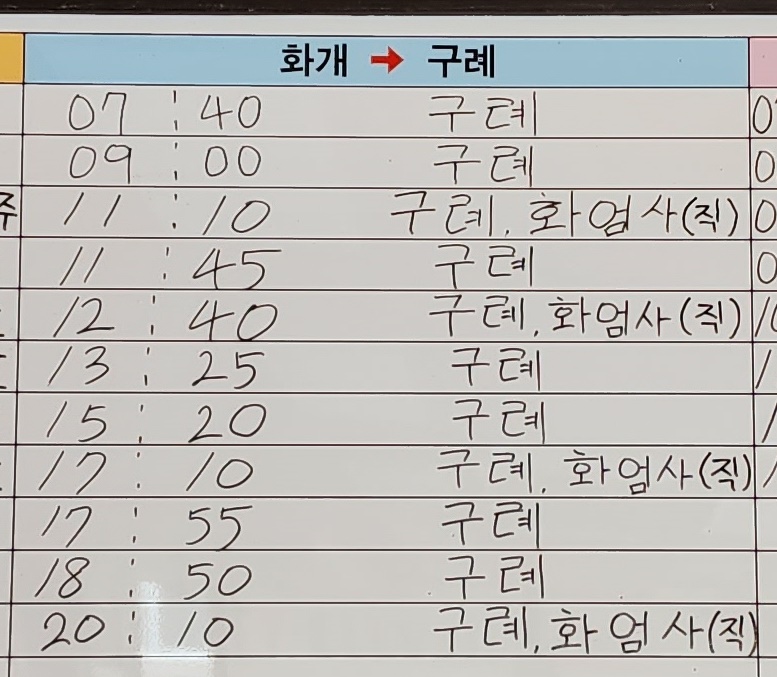 화개 → 구례
07 : 40 구례
09 : 00 구례
11 : 10 구례, 화엄사(직)
11 : 45 구례
12 : 40 구례, 화엄사(직)
13 : 25 구례
15 : 20 구례
17 : 10 구례, 화엄사(직)
17 : 55 구례
18 : 50 구례
20 : 10 구례, 화엄사(직)